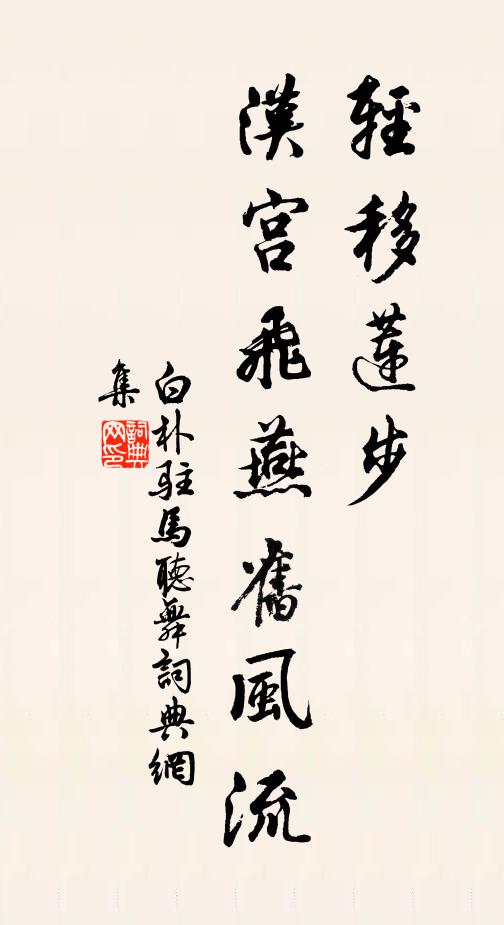 輕移蓮步
漢宮飛燕舊風流
白朴駐馬聽舞詞典網
集
詞典
网印